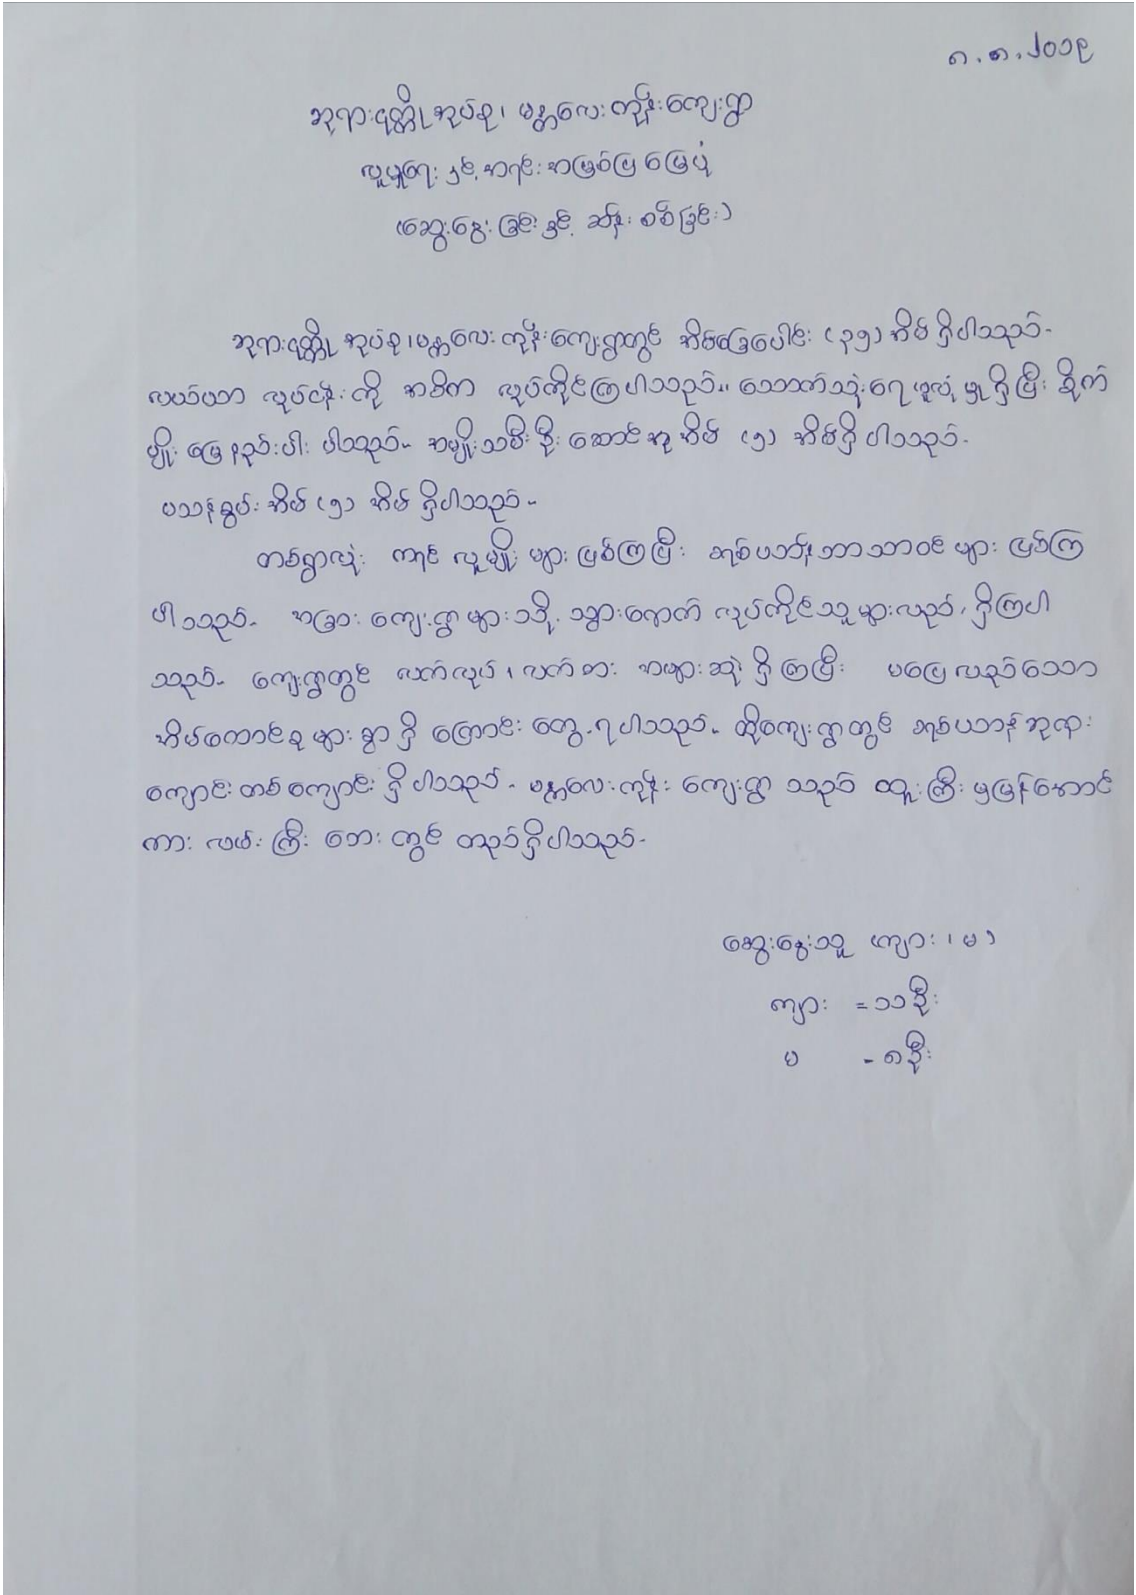 ၈.၈.၂၀၁၉
ဘုရားငုတ္တိုအုပ်စု၊ မန္တလေးကုန်းကျေးရွာ
လူမှုရေးနှင့်အရင်းအမြစ်ပြမြေပုံ
(ဆွေးနွေးခြင်းနှင့် ဆန်းစစ်ခြင်း)
ဘုရားငုတ္တိုအုပ်စု၊ မန္တလေးကုန်းကျေးရွာတွင် အိမ်ခြေပေါင်း (၃၅) အိမ်ရှိပါသည်။
လယ်ယာလုပ်ငန်းကို အဓိက လုပ်ကိုင်ကြပါသည်။ သောက်သုံးရေဖူလုံမှုရှိပြီး စိုက်
မျိုးမြေနည်းပါးပါသည်။ အမျိုးသမီးဦးဆောင်သူအိမ် (၅) အိမ်ရှိပါသည်။
မသန်စွမ်းအိမ် (၅) အိမ်ရှိပါသည်။
တစ်ရွာလုံး ကရင်လူမျိုးများဖြစ်ကြပြီး ခရစ်ယာန်ဘာသာဝင်များ ဖြစ်ကြ
ပါသည်။ အခြားကျေးရွာများသို့ သွားရောက် လုပ်ကိုင်သူများလည်း ရှိကြပါ
သည်။ ကျေးရွာတွင် လက်လုပ်၊ လက်စား အများဆုံးရှိကြပြီး မပြေလည်သော
အိမ်ထောင်စုများစွာရှိကြောင်း တွေ့ရပါသည်။ ထိုကျေးရွာတွင် ခရစ်ယာန်ဘုရား
ကျောင်းတစ်ကျောင်းရှိပါသည်။ မန္တလေးကုန်းကျေးရွာသည် ထူးကြီးမှမြန်အောင်
ကားလမ်းကြီးဘေးတွင် တည်ရှိပါသည်။
ဆွေးနွေးသူ (ကျား၊ မ)
ကျား = ၁၁ဦး
မ - ၈ဦး